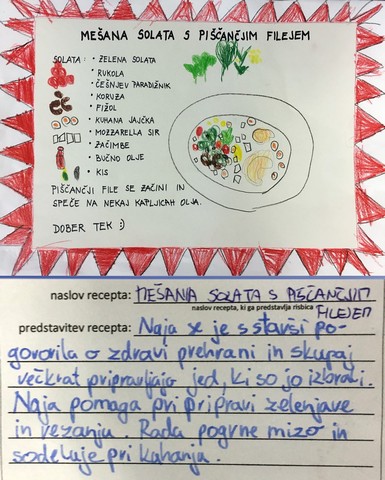 MEŠANA SOLATA S PIŠČANČJIM FILEJEM
SOLATA: • ZELENA SOLATA
• RUKOLA
• ČEŠNJEV PARADIŽNIK
• KORUZA
• FIŽOL
• KUHANA JAJČKA
• MOZZARELLA SIR
• ZAČIMBE
• BUČNO OLJE
• KIS
PIŠČANČJI FILE SE ZAČINI IN
SPEČE NA NEKAJ KAPLJICAH OLJA.
DOBER TEK :)
naslov recepta: MEŠANA SOLATA S PIŠČANČJIM
naslov recepta, ki ga predstavlja risbica
FILEJEM
predstavitev recepta: Naja se je s starši po-
govorila o zdravi prehrani in skupaj
večkrat pripravljajo jed, ki so jo izbrali.
Naja pomaga pri pripravi zelenjave
in rezanju. Rada pogrne mizo in
sodeluje pri kuhanju.